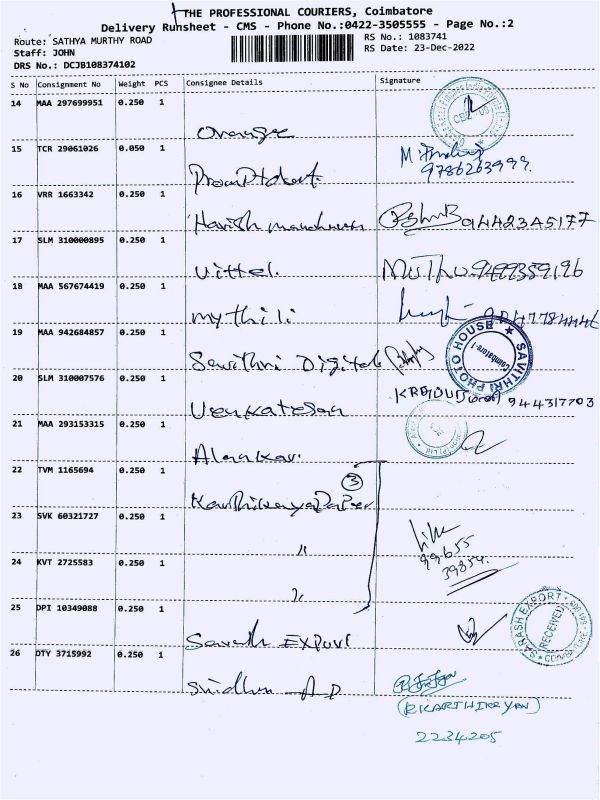 THE PROFESSIONAL COURIERS, Coimbatore
Delivery Runsheet - CMS - Phone No.:0422-3505555 - Page No.:2
Route: SATHYA MURTHY ROAD
RS No.: 1083741
Staff: JOHN
RS Date: 23-Dec-2022
DRS No.: DCJB108374102
S No Consignment No Weight PCS Consignee Details Signature
14 MAA 297699951 0.250 1
Orange
15 TCR 29061026 0.050 1
9786263999.
16 VRR 1663342 0.250 1
Harish
17 SLM 310000895 0.250 1
Vittel. MUTHU
18 MAA 567674419 0.250 1
mythili
19 MAA 942684857 0.250 1
Savithri Digital
SAVITHRI PHOTO HOUSE Coimbatore
20 SLM 310007576 0.250 1
Venkatesan 944317703
21 MAA 293153315 0.250 1
Alankar.
22 TVM 1165694 0.250 1
3
Karthikeya Paper
23 SVK 60321727 0.250 1
"
99655
39854.
24 KVT 2725583 0.250 1
"
25 DPI 10349088 0.250 1
Sarash Export
SARASH EXPORT RECEIVED
26 DTY 3715992 0.250 1
(R KARTHIKEYAN)
2234205